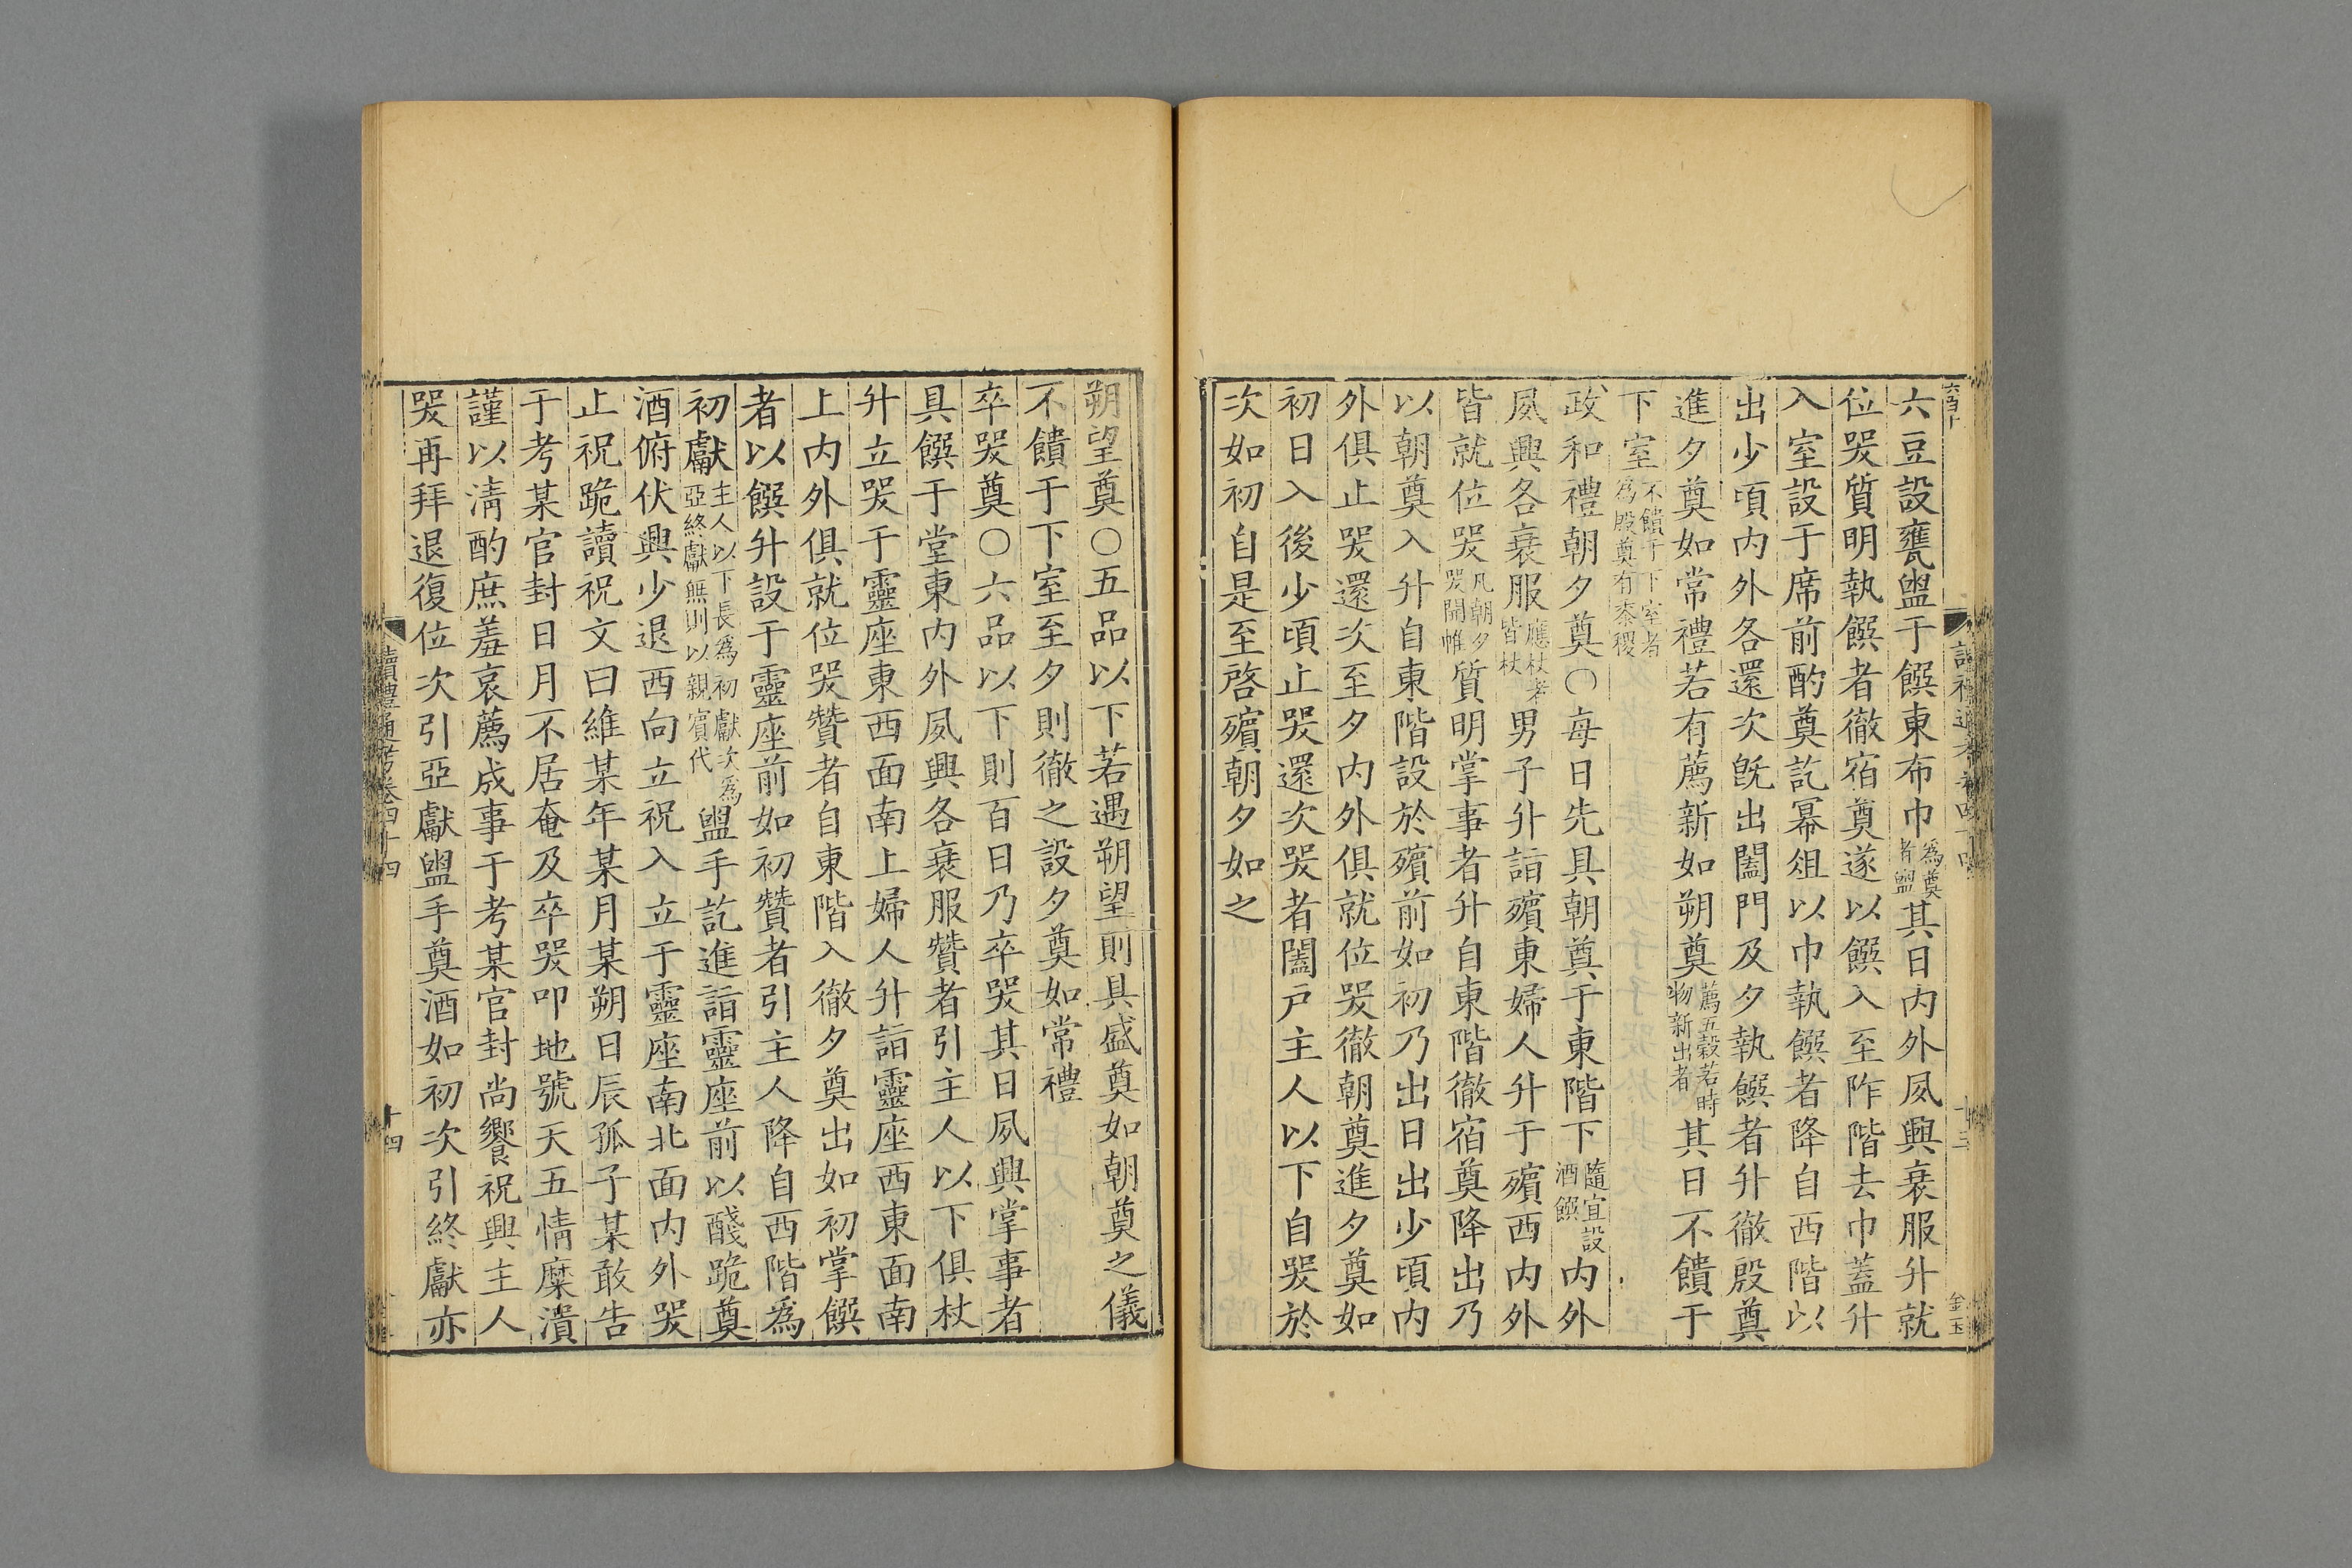 六豆設甕盥于饌東布巾為奠者盥其日内外夙興衰服升就
位哭質明執饌者徹宿奠遂以饌入至阼階去巾蓋升
入室設于席前酌奠訖冪俎以巾執饌者降自西階以
出少頃内外各還次旣出闔門及夕執饌者升徹殷奠
進夕奠如常禮若有薦新如朔奠薦五穀若時物新出者其日不饋于
下室不饋于下室者為殷奠有黍稷
政和禮朝夕奠○每日先具朝奠于東階下隨宜設酒饌内外
夙興各衰服應杖者皆杖男子升詣殯東婦人升于殯西内外
皆就位哭凡朝夕哭開帷質明掌事者升自東階徹宿奠降出乃
以朝奠入升自東階設於殯前如初乃出日出少頃内
外俱止哭還次至夕内外俱就位哭徹朝奠進夕奠如
初日入後少頃止哭還次哭者闔戸主人以下自哭於
次如初自是至啓殯朝夕如之
朔望奠○五品以下若遇朔望則具盛奠如朝奠之儀
不饋于下室至夕則徹之設夕奠如常禮
卒哭奠○六品以下則百日乃卒哭其日夙興掌事者
具饌于堂東内外夙興各衰服贊者引主人以下俱杖
升立哭于靈座東西面南上婦人升詣靈座西東面南
上内外俱就位哭贊者自東階入徹夕奠出如初掌饌
者以饌升設于靈座前如初贊者引主人降自西階為
初獻主人以下長為初獻次為亞終獻無則以親賓代盥手訖進詣靈座前以醆跪奠
酒俯伏興少退西向立祝入立于靈座南北面内外哭
止祝跪讀祝文曰維某年某月某朔日辰孤子某敢告
于考某官封日月不居奄及卒哭叩地號天五情糜潰
謹以清酌庶羞哀薦成事于考某官封尚饗祝興主人
哭再拜退復位次引亞獻盥手奠酒如初次引終獻亦
讀禮通考卷四十四
十四